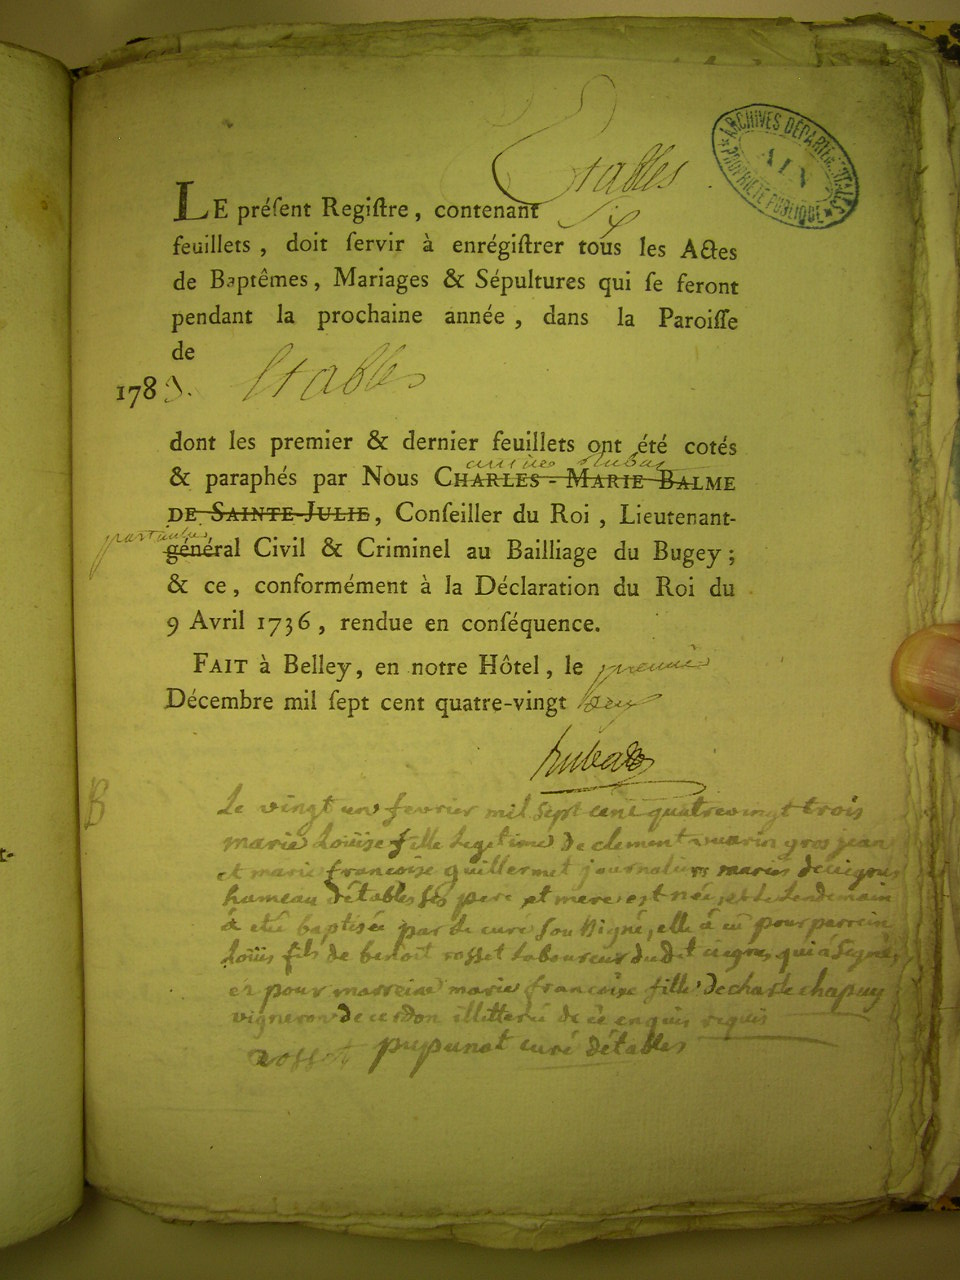 Etables
ARCHIVES DÉPARTEMENTALES
AIN
PROPRIÉTÉ PUBLIQUE
LE préſent Regiſtre, contenant Six
feuillets, doit ſervir à enrégiſtrer tous les Actes
de Baptêmes, Mariages & Sépultures qui ſe feront
pendant la prochaine année, dans la Paroiſſe
de
1783. Etables
dont les premier & dernier feuillets ont été cotés
& paraphés par Nous CHARLES-MARIE BALME
DE SAINTE-JULIE, Conſeiller du Roi, Lieutenant-
particulier
général Civil & Criminel au Bailliage du Bugey;
& ce, conformément à la Déclaration du Roi du
9 Avril 1736, rendue en conſéquence.
FAIT à Belley, en notre Hôtel, le premier
Décembre mil ſept cent quatre-vingt deux
B
Le vingt un fevrier mil Sept cent quatrevingt trois
marie Loüise fille Legitime de clement marin gros jean
et marie francoise guillermet journaliers mariés
hameau d'étables Ses pere et mere est née, et le lendemain
à eté baptisée par le curé Sousigné, elle à eu pour parrein
Loüis fils de benoit rosset laboureur dudit qui à Signé,
et pour marreine marie francoise fille de charle chapuy
vigneron de cerdon illitterée de ce enquis requis
rosset pupunat curé détables